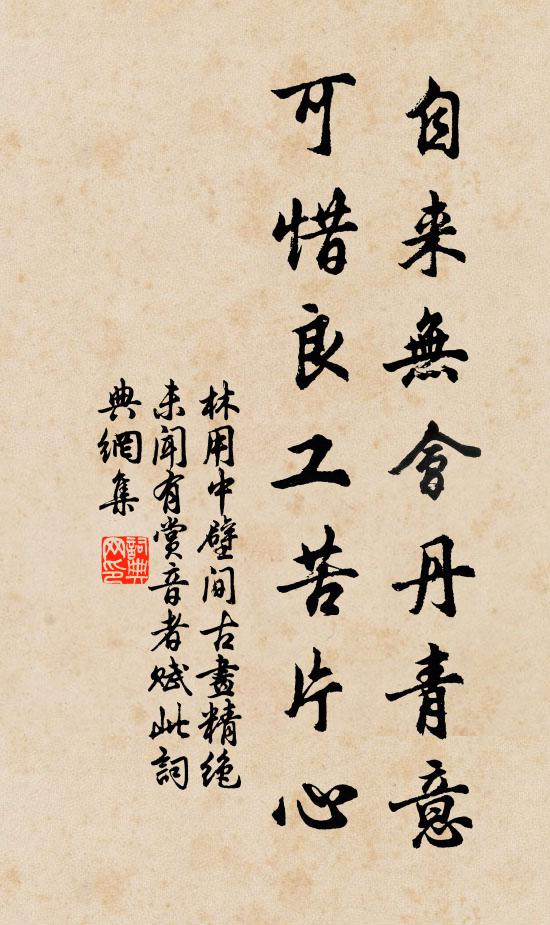 自来無會丹青意
可惜良工苦片心
林用中壁间古畫精绝
未聞有赏音者赋此詞
典網集
詞典網印